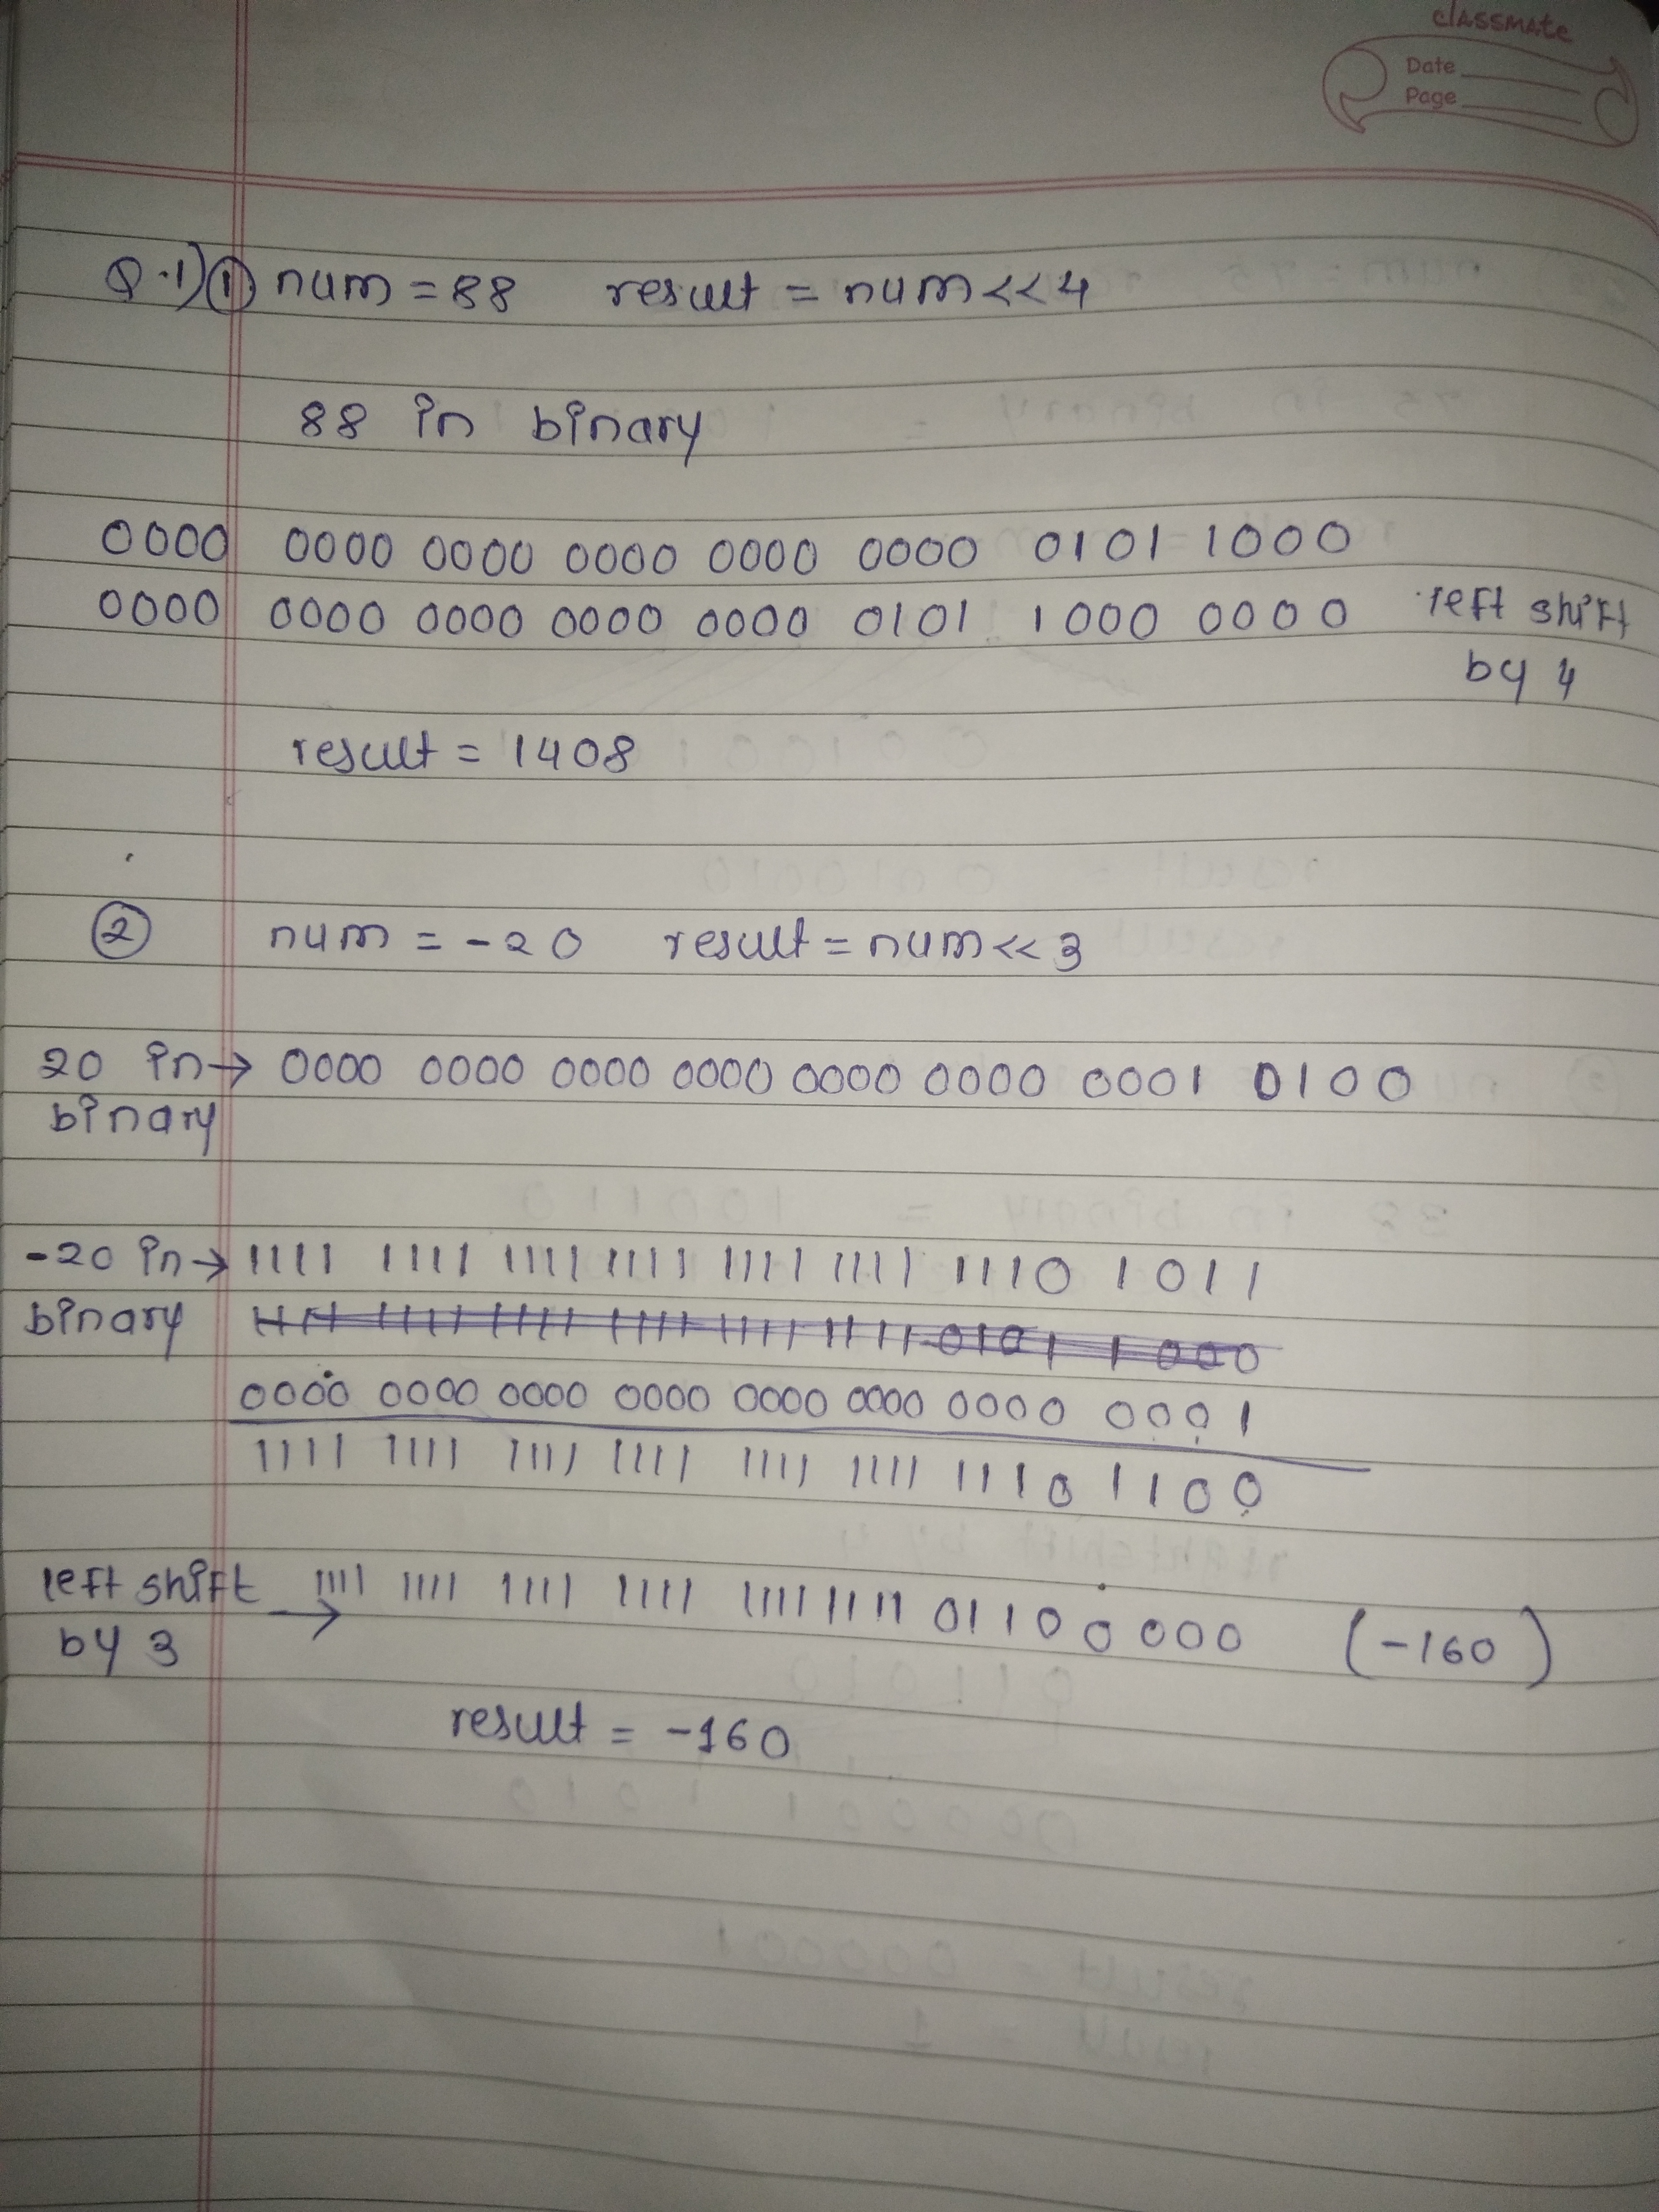 classmate
Date
Page
Q.1) ① num = 88 result = num << 4
88 in binary
0000 0000 0000 0000 0000 0000 0101 1000
0000 0000 0000 0000 0000 0101 1000 0000 left shift
by 4
result = 1408
② num = -20 result = num << 3
20 in → 0000 0000 0000 0000 0000 0000 0001 0100
binary
-20 in → 1111 1111 1111 1111 1111 1111 1110 1011
binary
0000 0000 0000 0000 0000 0000 0000 0001
1111 1111 1111 1111 1111 1111 1110 1100
left shift → 1111 1111 1111 1111 1111 1111 0110 0000 (-160)
by 3
result = -160